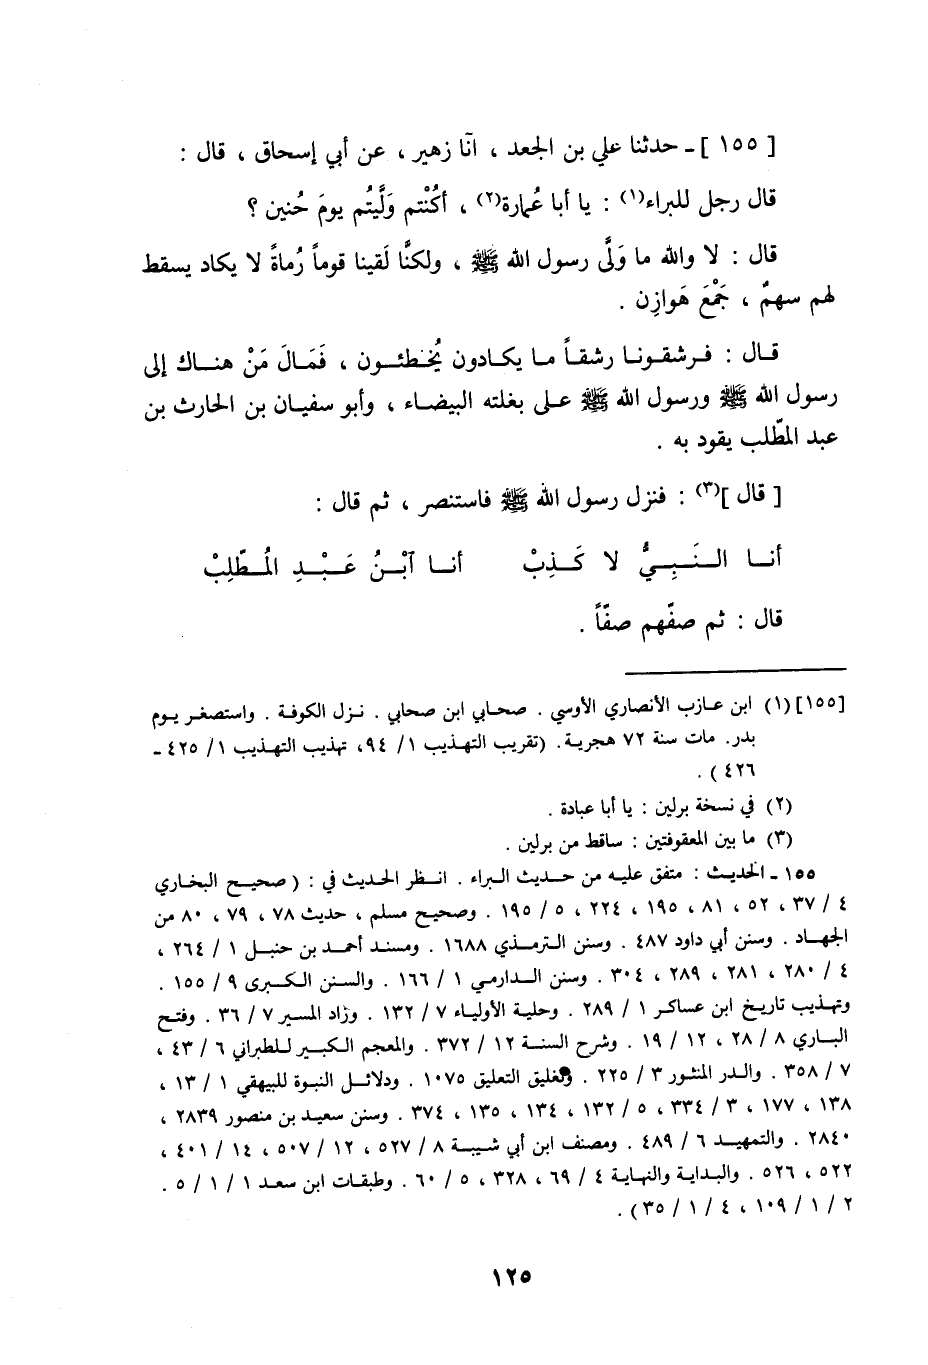 [ ١٥٥ ] ـ حدثنا علي بن الجعد ، انّا زهير ، عن أبي إسحاق ، قال :
قال رجل للبراء(١) : يا أبا عُمارة(٢) ، أكُنْتم وَلَّيتُم يومَ حُنين ؟
قال : لا والله ما وَلَّى رسول الله ﷺ ، ولكنَّا لَقينا قوماً رُماةً لا يكاد يسقط
لهم سهمٌ ، جَمْعَ هَوازِن .
قال : فرشقونا رشقاً ما يكادون يُخطئون ، فَمَالَ مَنْ هناك إلى
رسول الله ﷺ ورسول الله ﷺ على بغلته البيضاء ، وأبو سفيان بن الحارث بن
عبد المطّلب يقود به .
[ قال ](٣) : فنزل رسول الله ﷺ فاستنصر ، ثم قال :
أنا النَبِيُّ لا كَذِبْ أنا آبْنُ عَبْدِ المُطَّلِبْ
قال : ثم صفّهم صفّاً .
[١٥٥](١) ابن عازب الأنصاري الأوسي . صحابي ابن صحابي . نزل الكوفة . واستصغر يوم
بدر. مات سنة ٧٢ هجرية. (تقريب التهذيب ١/ ٩٤، تهذيب التهذيب ١/ ٤٢٥ ـ
٤٢٦ ) .
(٢) في نسخة برلين : يا أبا عبادة .
(٣) ما بين المعقوفتين : ساقط من برلين .
١٥٥ ـ الحديث : متفق عليه من حديث البراء . انظر الحديث في : ( صحيح البخاري
٤ / ٣٧ ، ٥٢ ، ٨١ ، ١٩٥ ، ٢٢٤ ، ٥ / ١٩٥ . وصحيح مسلم ، حديث ٧٨ ، ٧٩ ، ٨٠ من
الجهاد . وسنن أبي داود ٤٨٧ . وسنن الترمذي ١٦٨٨ . ومسند أحمد بن حنبل ١ / ٢٦٤ ،
٤ / ٢٨٠ ، ٢٨١ ، ٢٨٩ ، ٣٠٤ . وسنن الدارمي ١ / ١٦٦ . والسنن الكبرى ٩ / ١٥٥ .
وتهذيب تاريخ ابن عساكر ١ / ٢٨٩ . وحلية الأولياء ٧ / ١٣٢ . وزاد المسير ٧ / ٣٦ . وفتح
الباري ٨ / ٢٨ ، ١٢ / ١٩ . وشرح السنة ١٢ / ٣٧٢ . والمعجم الكبير للطبراني ٦ / ٤٣ ،
٧ / ٣٥٨ . والدر المنثور ٣ / ٢٢٥ . وتغليق التعليق ١٠٧٥ . ودلائل النبوة للبيهقي ١ / ١٣ ،
١٣٨ ، ١٧٧ ، ٣ / ٣٣٤ ، ٥ / ١٣٢ ، ١٣٤ ، ١٣٥ ، ٣٧٤ . وسنن سعيد بن منصور ٢٨٣٩ ،
٢٨٤٠ . والتمهيد ٦ / ٤٨٩ . ومصنف ابن أبي شيبة ٨ / ٥٢٧ ، ١٢ / ٥٠٧ ، ١٤ / ٤٠١ ،
٥٢٢ ، ٥٢٦ . والبداية والنهاية ٤ / ٦٩ ، ٣٢٨ ، ٥ / ٦٠ . وطبقات ابن سعد ١ / ١ / ٥ .
٢ / ١ / ١٠٩ ، ٤ / ١ / ٣٥) .
١٢٥